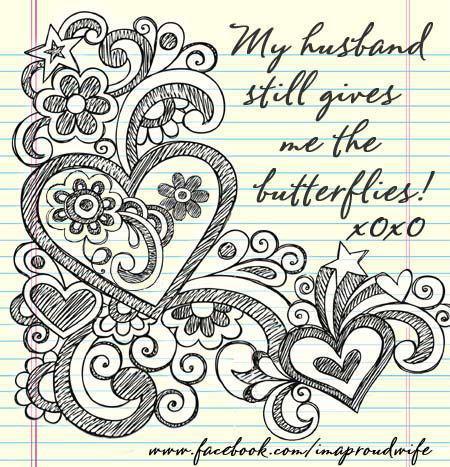 My husband
still gives
me the
butterflies!
xoxo
www.facebook.com/imaproudwife